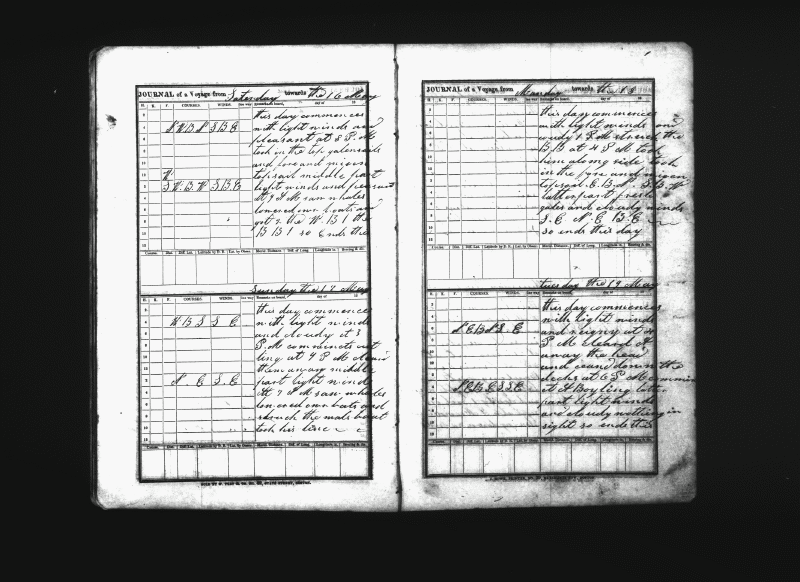 JOURNAL of a Voyage from Saturday towards the 16 May
H. K. F. COURSES. WINDS. Remarks on board, day of 18
this day commences
N W B N S B E with light winds and
pleasant at 8 P M
took in the top galensails
and fore and mizen
W topsail middle part
S W B W S B E light winds and pleasant
at 9 A M saw whales
lowered our boats and
got 2 the W B 1 the
B B 1 so ends this
Course. Dist. Diff. Lat. Latitude by D. R. Lat. by Obser. Merid. Distance. Diff. of Long. Longitude in Bearing & dis.
Sunday the 17 May
H. K. F. COURSES. WINDS. Remarks on board, day of 18
this day commences
W B S S E with light winds
and cloudy at 3
P M commences cut
ting at 4 P M
them away middle
N E S E part light winds
at 7 A M saw whales
lowered our boats and
struck the mate boat
took his line
Course. Dist. Diff. Lat. Latitude by D. R. Lat. by Obser. Merid. Distance. Diff. of Long. Longitude in Bearing & dis.
JOURNAL of a Voyage from Monday towards the 18
H. K. F. COURSES. WINDS. Remarks on board, day of 18
this day commences
with light winds and
cloudy 1 P M struck the
B B at 4 P M took
him along side took
in the fore and mizen
topsail E B N S B W
latter part fresh
gales and cloudy winds
S E N E B E
so ends this day
Course. Dist. Diff. Lat. Latitude by D. R. Lat. by Obser. Merid. Distance. Diff. of Long. Longitude in Bearing & dis.
tuesday the 19 May
H. K. F. COURSES. WINDS. Remarks on board, day of 18
this day commences
with light winds
N E B N S. E and
P M
away the head
and down the
decks at 6 P M
N E B E S S E at
part light winds
and cloudy nothing in
sight so ends this
Course. Dist. Diff. Lat. Latitude by D. R. Lat. by Obser. Merid. Distance. Diff. of Long. Longitude in Bearing & dis.